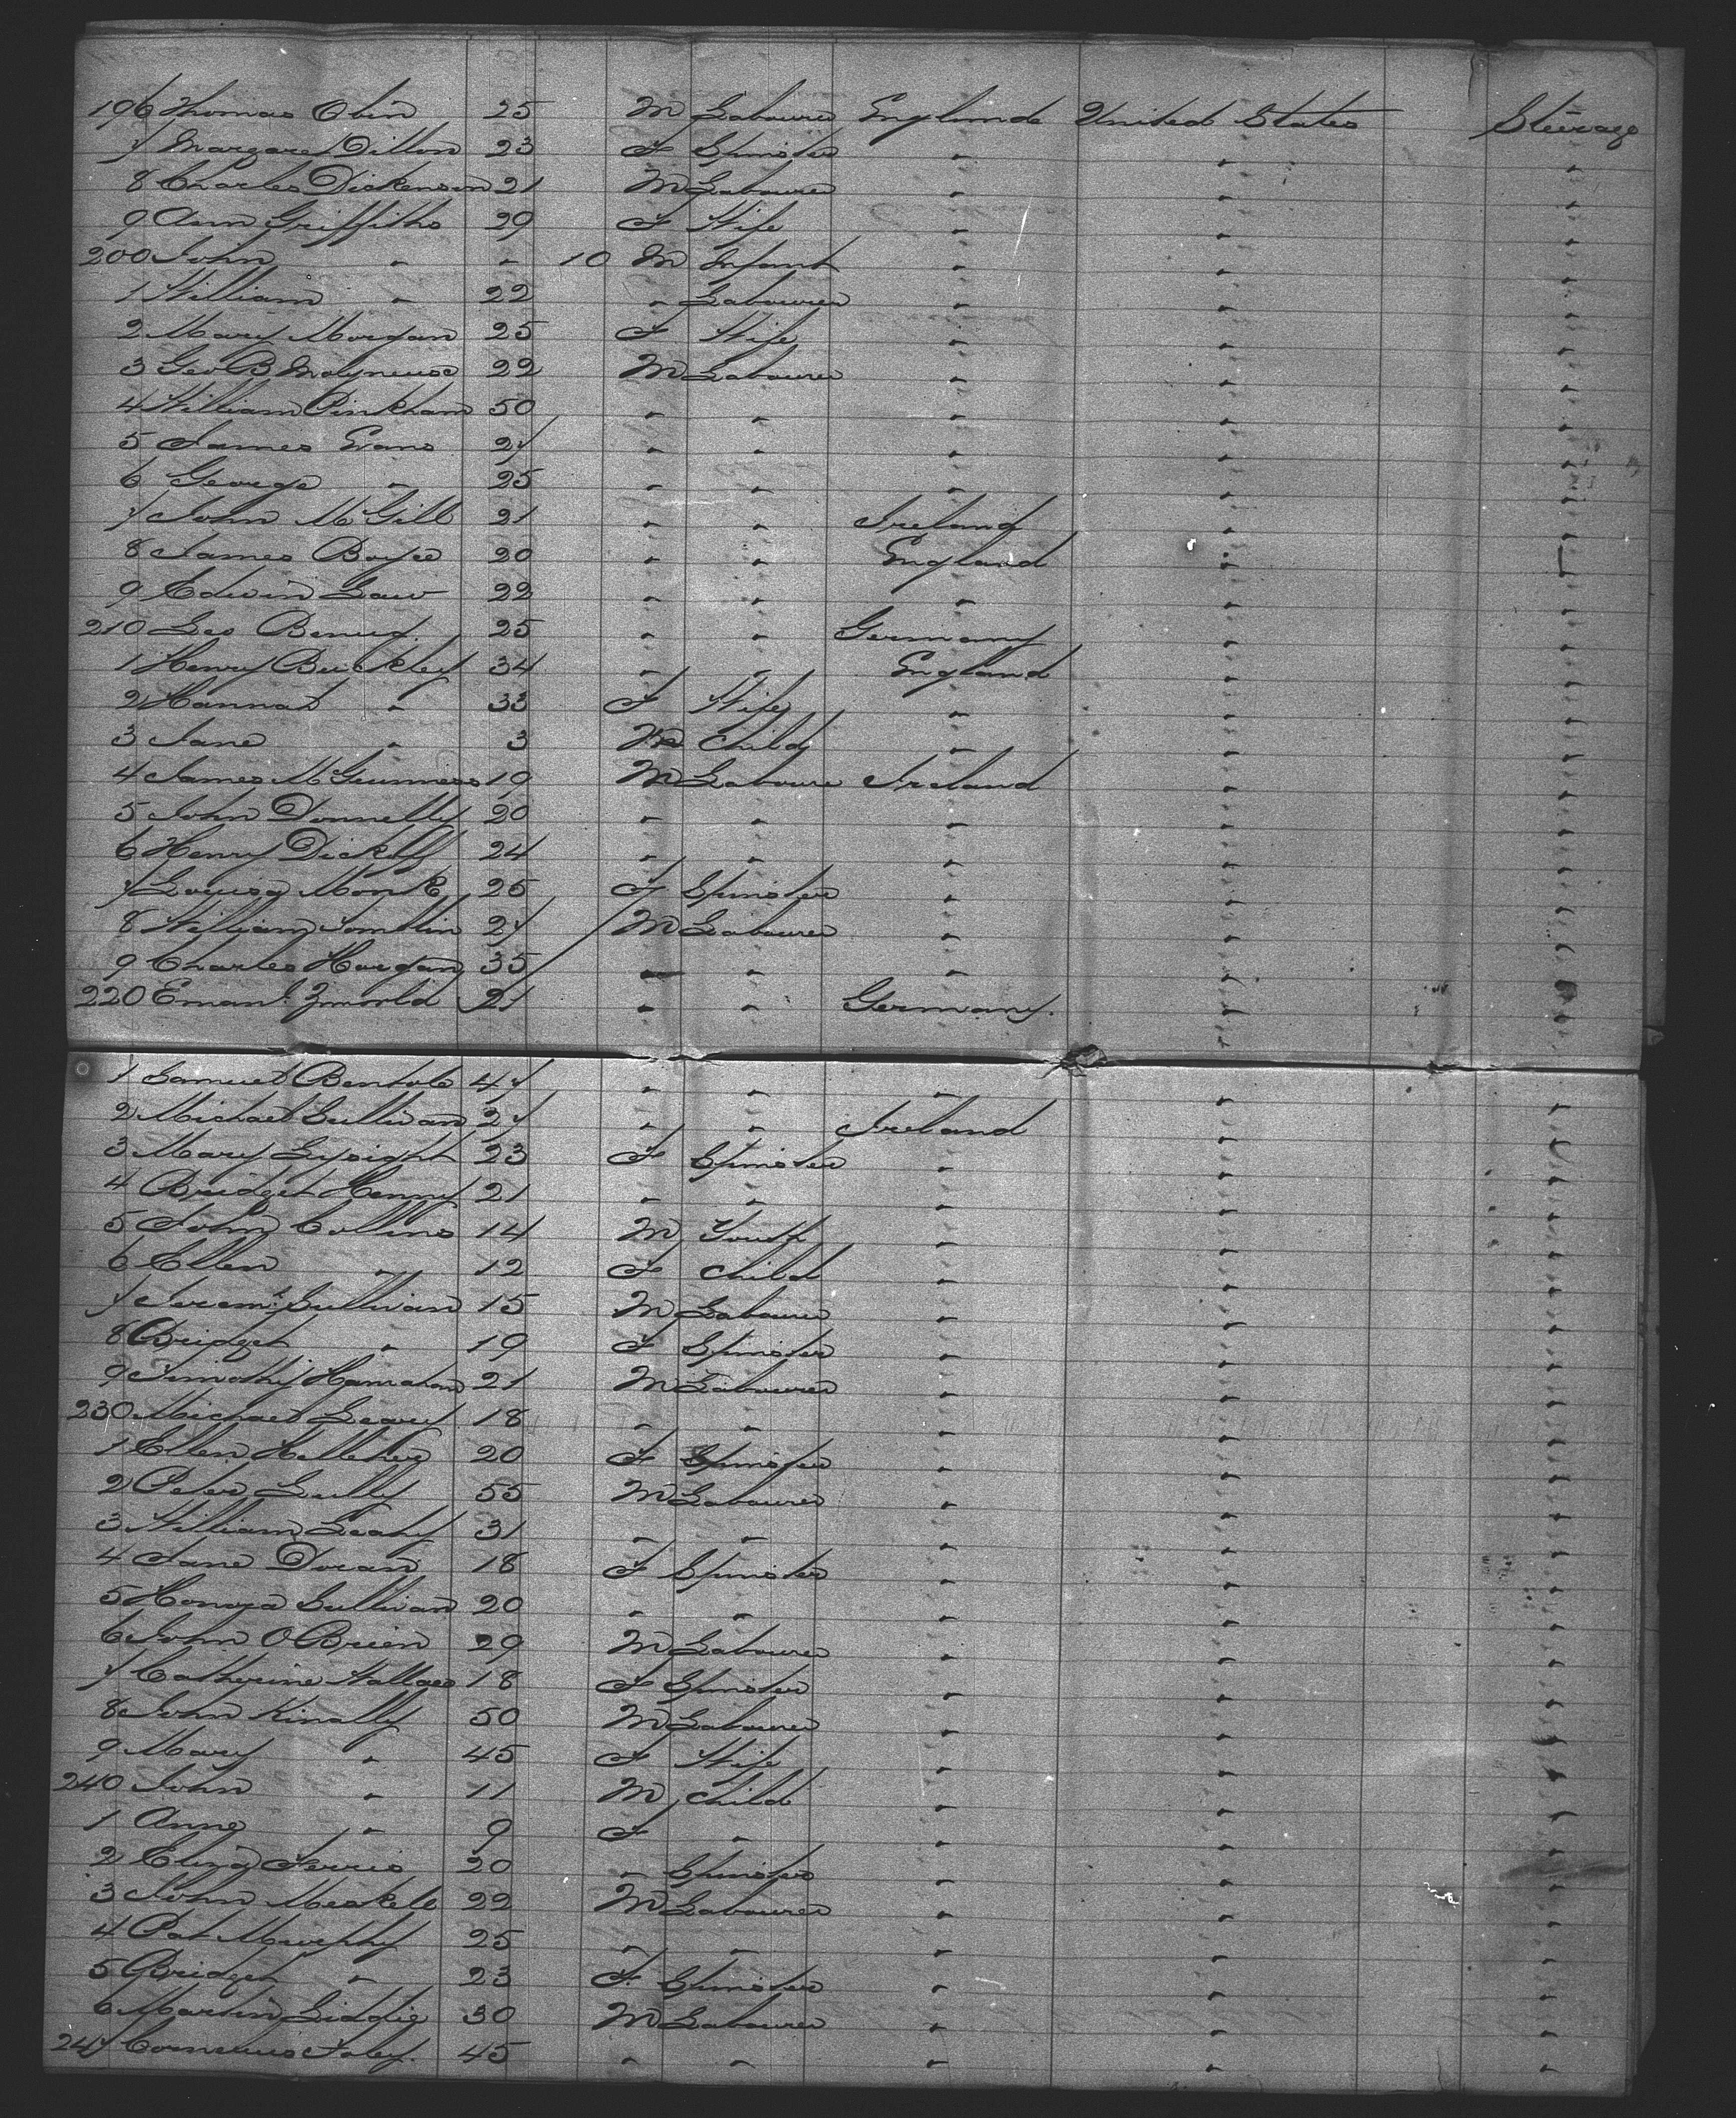 196 Thomas Obin 25 M Labourer England United States Steerage
7 Margaret Dillon 23 F Spinster " " "
8 Charles Dickenson 21 M Labourer " " "
9 Ann Griffiths 29 F Wife " " "
200 John " " 10 M Infant " " "
1 William " 22 " Labourer " " "
2 Mary Morgan 25 F Wife " " "
3 Geo B 22 M Labourer " " "
4 William Pinkham 50 " " " " "
5 James Evans 27 " " " " "
6 George " 25 " " " " "
7 John McGill 21 " " Ireland " "
8 James Boyce 20 " " England " "
9 Edwin Law 22 " " " " "
210 Leo 25 " " Germany " "
1 Henry Buckley 34 " " England " "
2 Hannah " 33 F Wife " " "
3 Jane " 3 Child " " "
4 James McGuinness 19 M Labourer Ireland " "
5 John Donnelly 20 " " " " "
6 Henry 24 " " " " "
7 Louisa Monk 26 F Spinster " " "
8 William Tomblin 27 M Labourer " " "
9 Charles Horgan 35 " " " " "
220 Emanl. 21 " " Germany. " "
1 Samuel 47 " " " " "
2 Michael Sullivan 27 " " Ireland " "
3 Mary Lysight 23 F Spinster " " "
4 Bridget Henny 21 " " " " "
5 John Collins 14 M Youth " " "
6 Ellen " 12 F Child " " "
7 Jeremh. Sullivan 15 M Labourer " " "
8 Bridget " 19 F Spinster " " "
9 Timothy Hanrahan 21 M Labourer " " "
230 Michael Leary 18 " " " " "
1 Ellen Kelleher 20 F Spinster " " "
2 Peter Lully 55 M Labourer " " "
3 William Leahy 31 " " " " "
4 Jane Doran 18 F Spinster " " "
5 Honora Sullivan 20 " " " " "
6 John O'Brien 29 M Labourer " " "
7 Catherine Wallace 18 F Spinster " " "
8 John Kinally 50 M Labourer " " "
9 Mary " 45 F Wife " " "
240 John " 11 M Child " " "
1 Anne " 9 F " " " "
2 Eliza Ferris 20 " Spinster " " "
3 John Meskell 22 M Labourer " " "
4 Pat Murphy 25 " " " " "
5 Bridget " 23 F Spinster " " "
6 Martin Liddie 30 M Labourer " " "
247 Cornelius Foley. 45 " " " " "